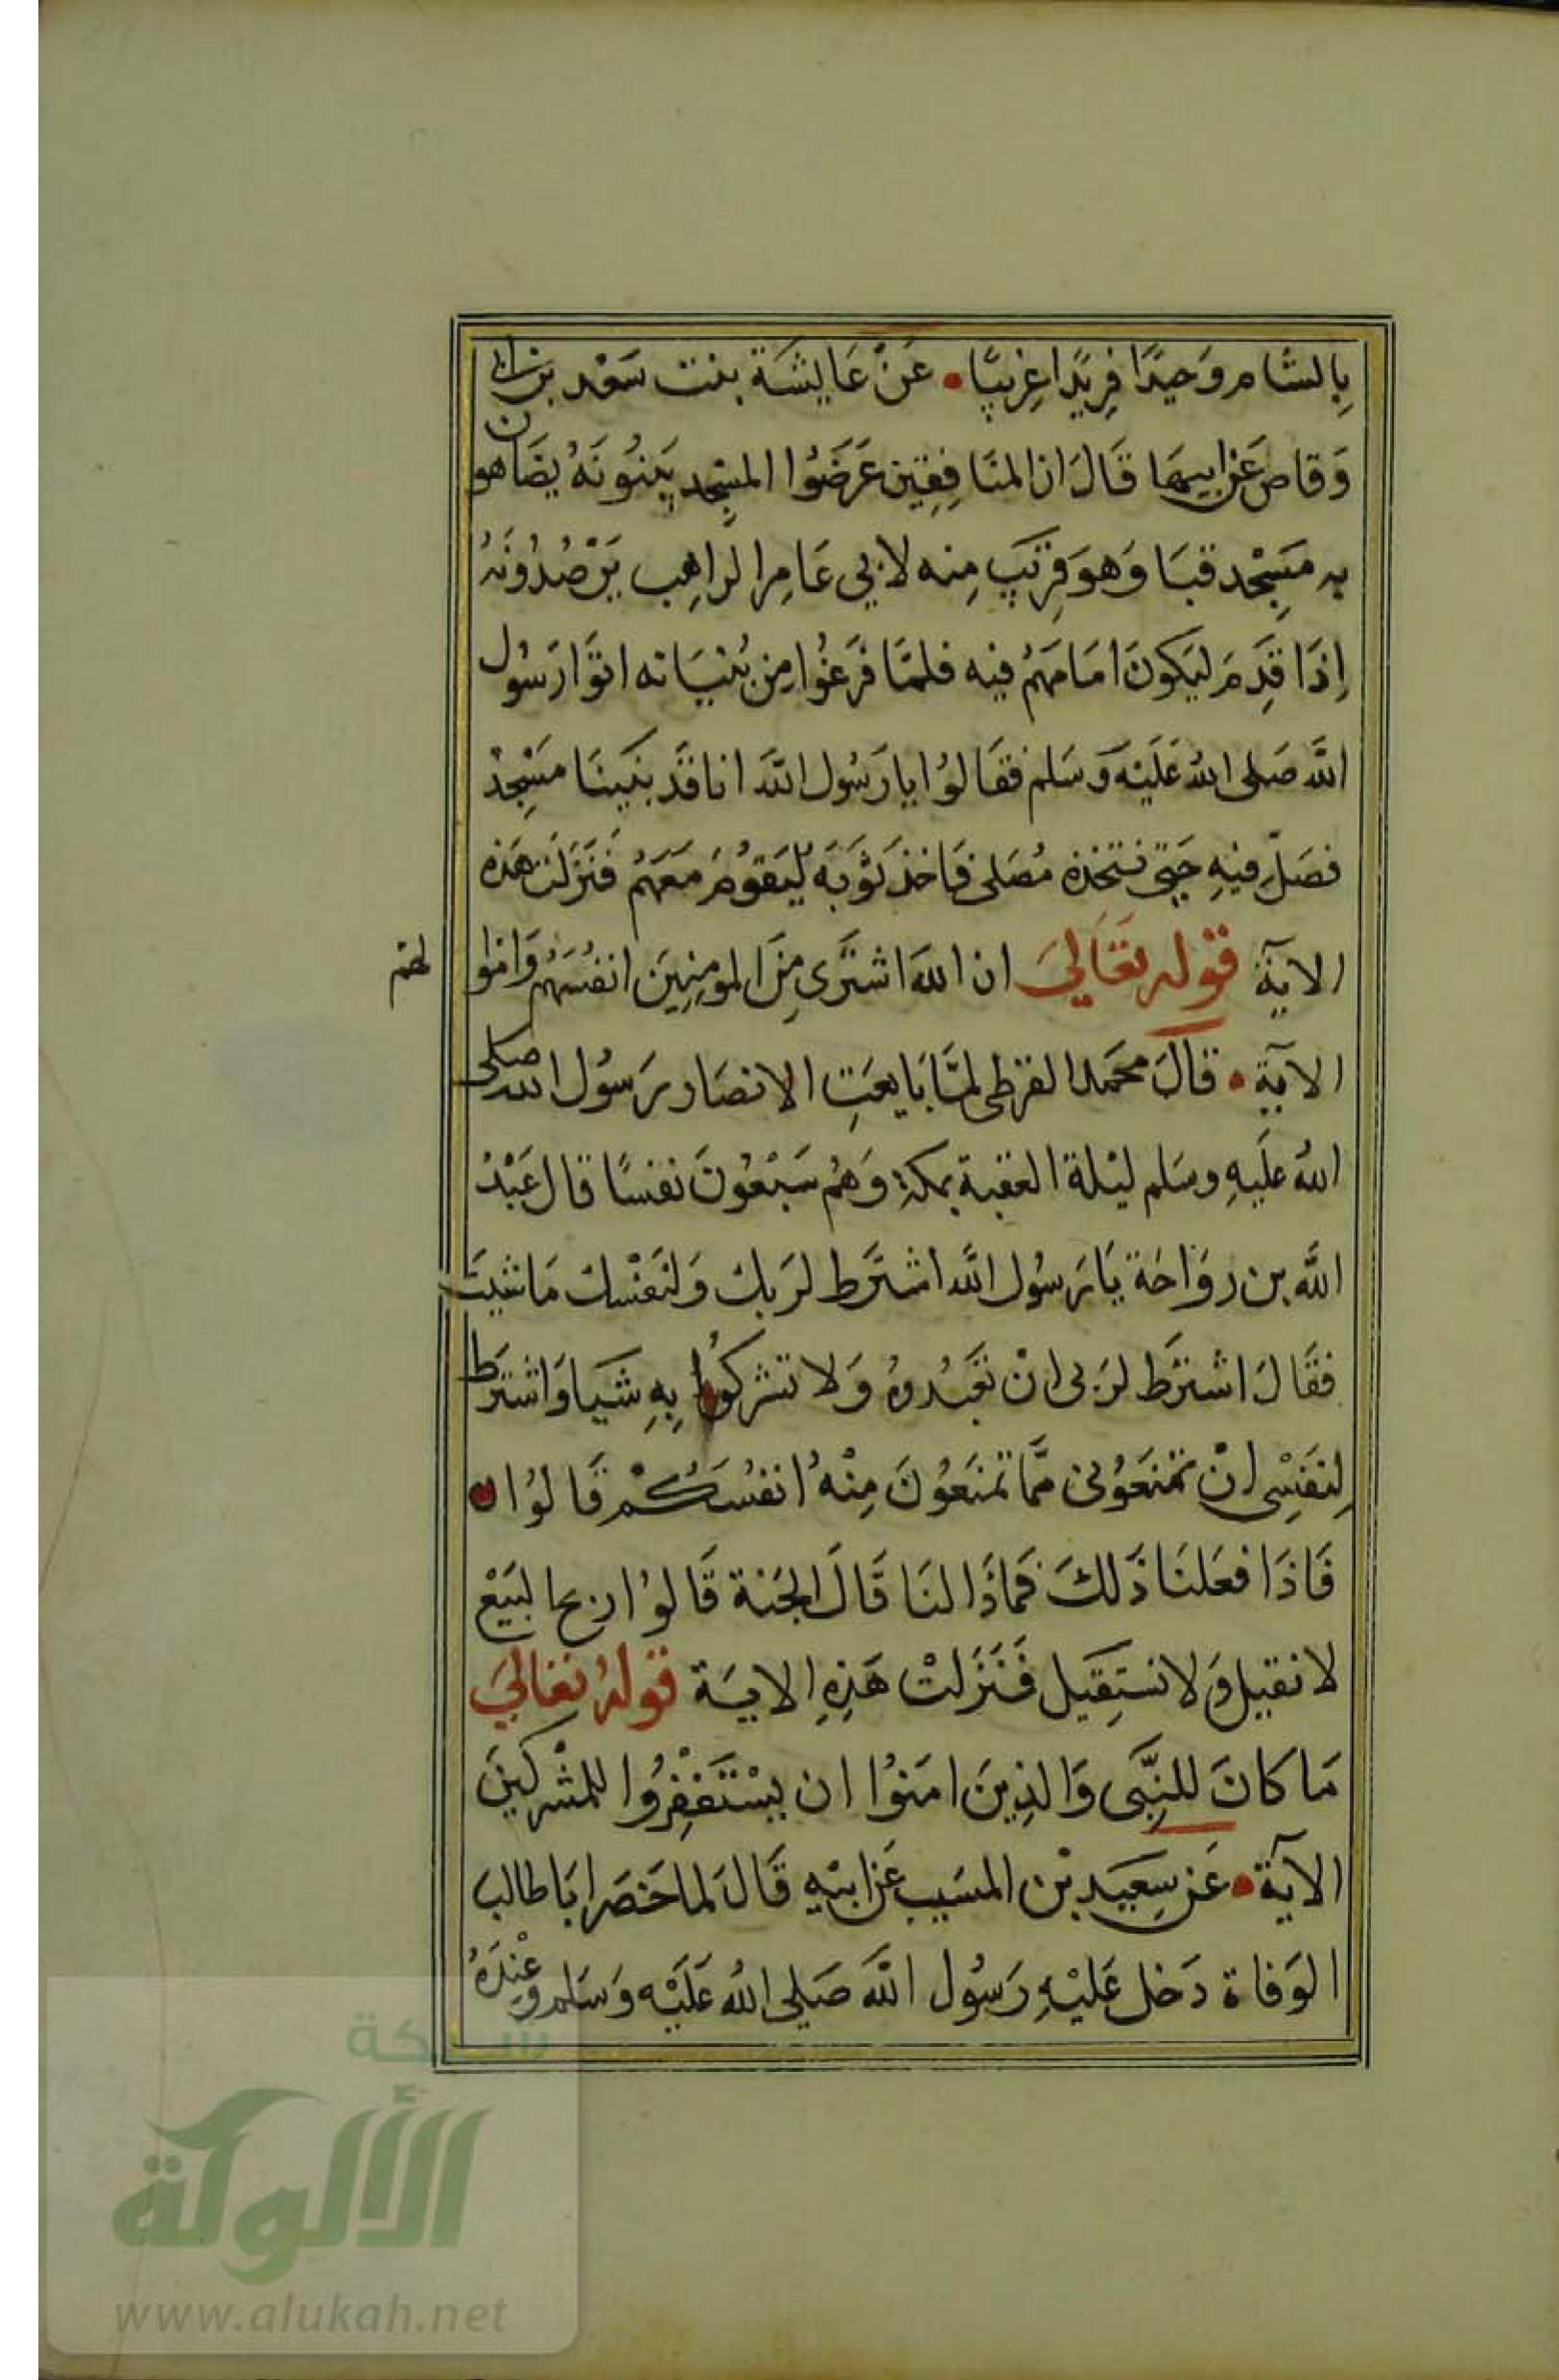 بِالشام وَحيدًا فِريدًا غِريبًا • عَنْ عَايِشَة بنت سَعْد بن ابي
وَقاص عَن ابيهَا قَالَ ان المنَافِقِين عَرَضُوا المسْجِد يَبنُونَهُ يضَاهون
به مَسِجْد قبَا وَهوَ قرِيَب مِنه لابي عَامِر الراهِب يَرْصُدُونَهُ
اِذَا قدِمَ ليَكونَ امَامَهُمْ فيه فلمَّا فَرَغُوا مِن بُنيَانه اتَوَا رَسُول
اللَّه صَلى اللهُ عَلَيْهَ وَسَلم فقَالوُا يا رَسُول اللَّه انا قَد بنَينَا مَسْجِدْ
فصَلِّ فيهِ حَتى نتخذه مُصَلى فَاخذ ثوَبَهُ ليَقوُمَ مَعَهُمْ فَنَزلَت هَذه
الآيَة قوله تعَالىَ ان اللهَ اشترَى مِنَ المومِنِينَ انفُسَهُم وَاموالهم
الآية • قالَ محَمد القرظى لمَّا بَايعَتِ الانصَار رَسوُل الله صلى
اللهُ عَلَيهِ وسَلم ليْلة العَقبة بمكة وَهُم سَبْعُونَ نفسًا قال عَبْدُ
اللَّه بن روَاحَة يَا رَسوُل اللَّه اشترَط لرَبك وَلنَفْسك مَا شيتَ
فقَالَ اشترَط لرَبى انْ تعَبُدوهُ وَلا تشركُوا بِهِ شَيا وَاشترَط
لِنفَسِْى انْ تمْنعَوُنى ممَّا تمنَعوُنَ مِنْهُ انفُسَكُمْ قَالوُا
فَاذَا فعَلنَا ذَلكَ فمَاذَا لنَا قَالَ الجَنة قَالوُا ربح البَيْع
لا نقيل وَلا نستِقَيل فَنَزَلتْ هَذِهِ الايَة قولهُ تعَالىَ
مَا كانَ للنِبَّى وَالذِينَ امَنوُا ان يسْتَغْفِرُوا للمُشركينَ
الآيَة • عَن سِعَيد بْن المسَيب عَن ابيْهِ قَالَ لما حَضرَ ابَا طالب
الوَفاة دَخل عَليْهِ رَسوُل اللَّه صَلى اللهُ عَلَيْهِ وَسَلم وَعِنْدَهُ
شبكة
الألوكة
www.alukah.net